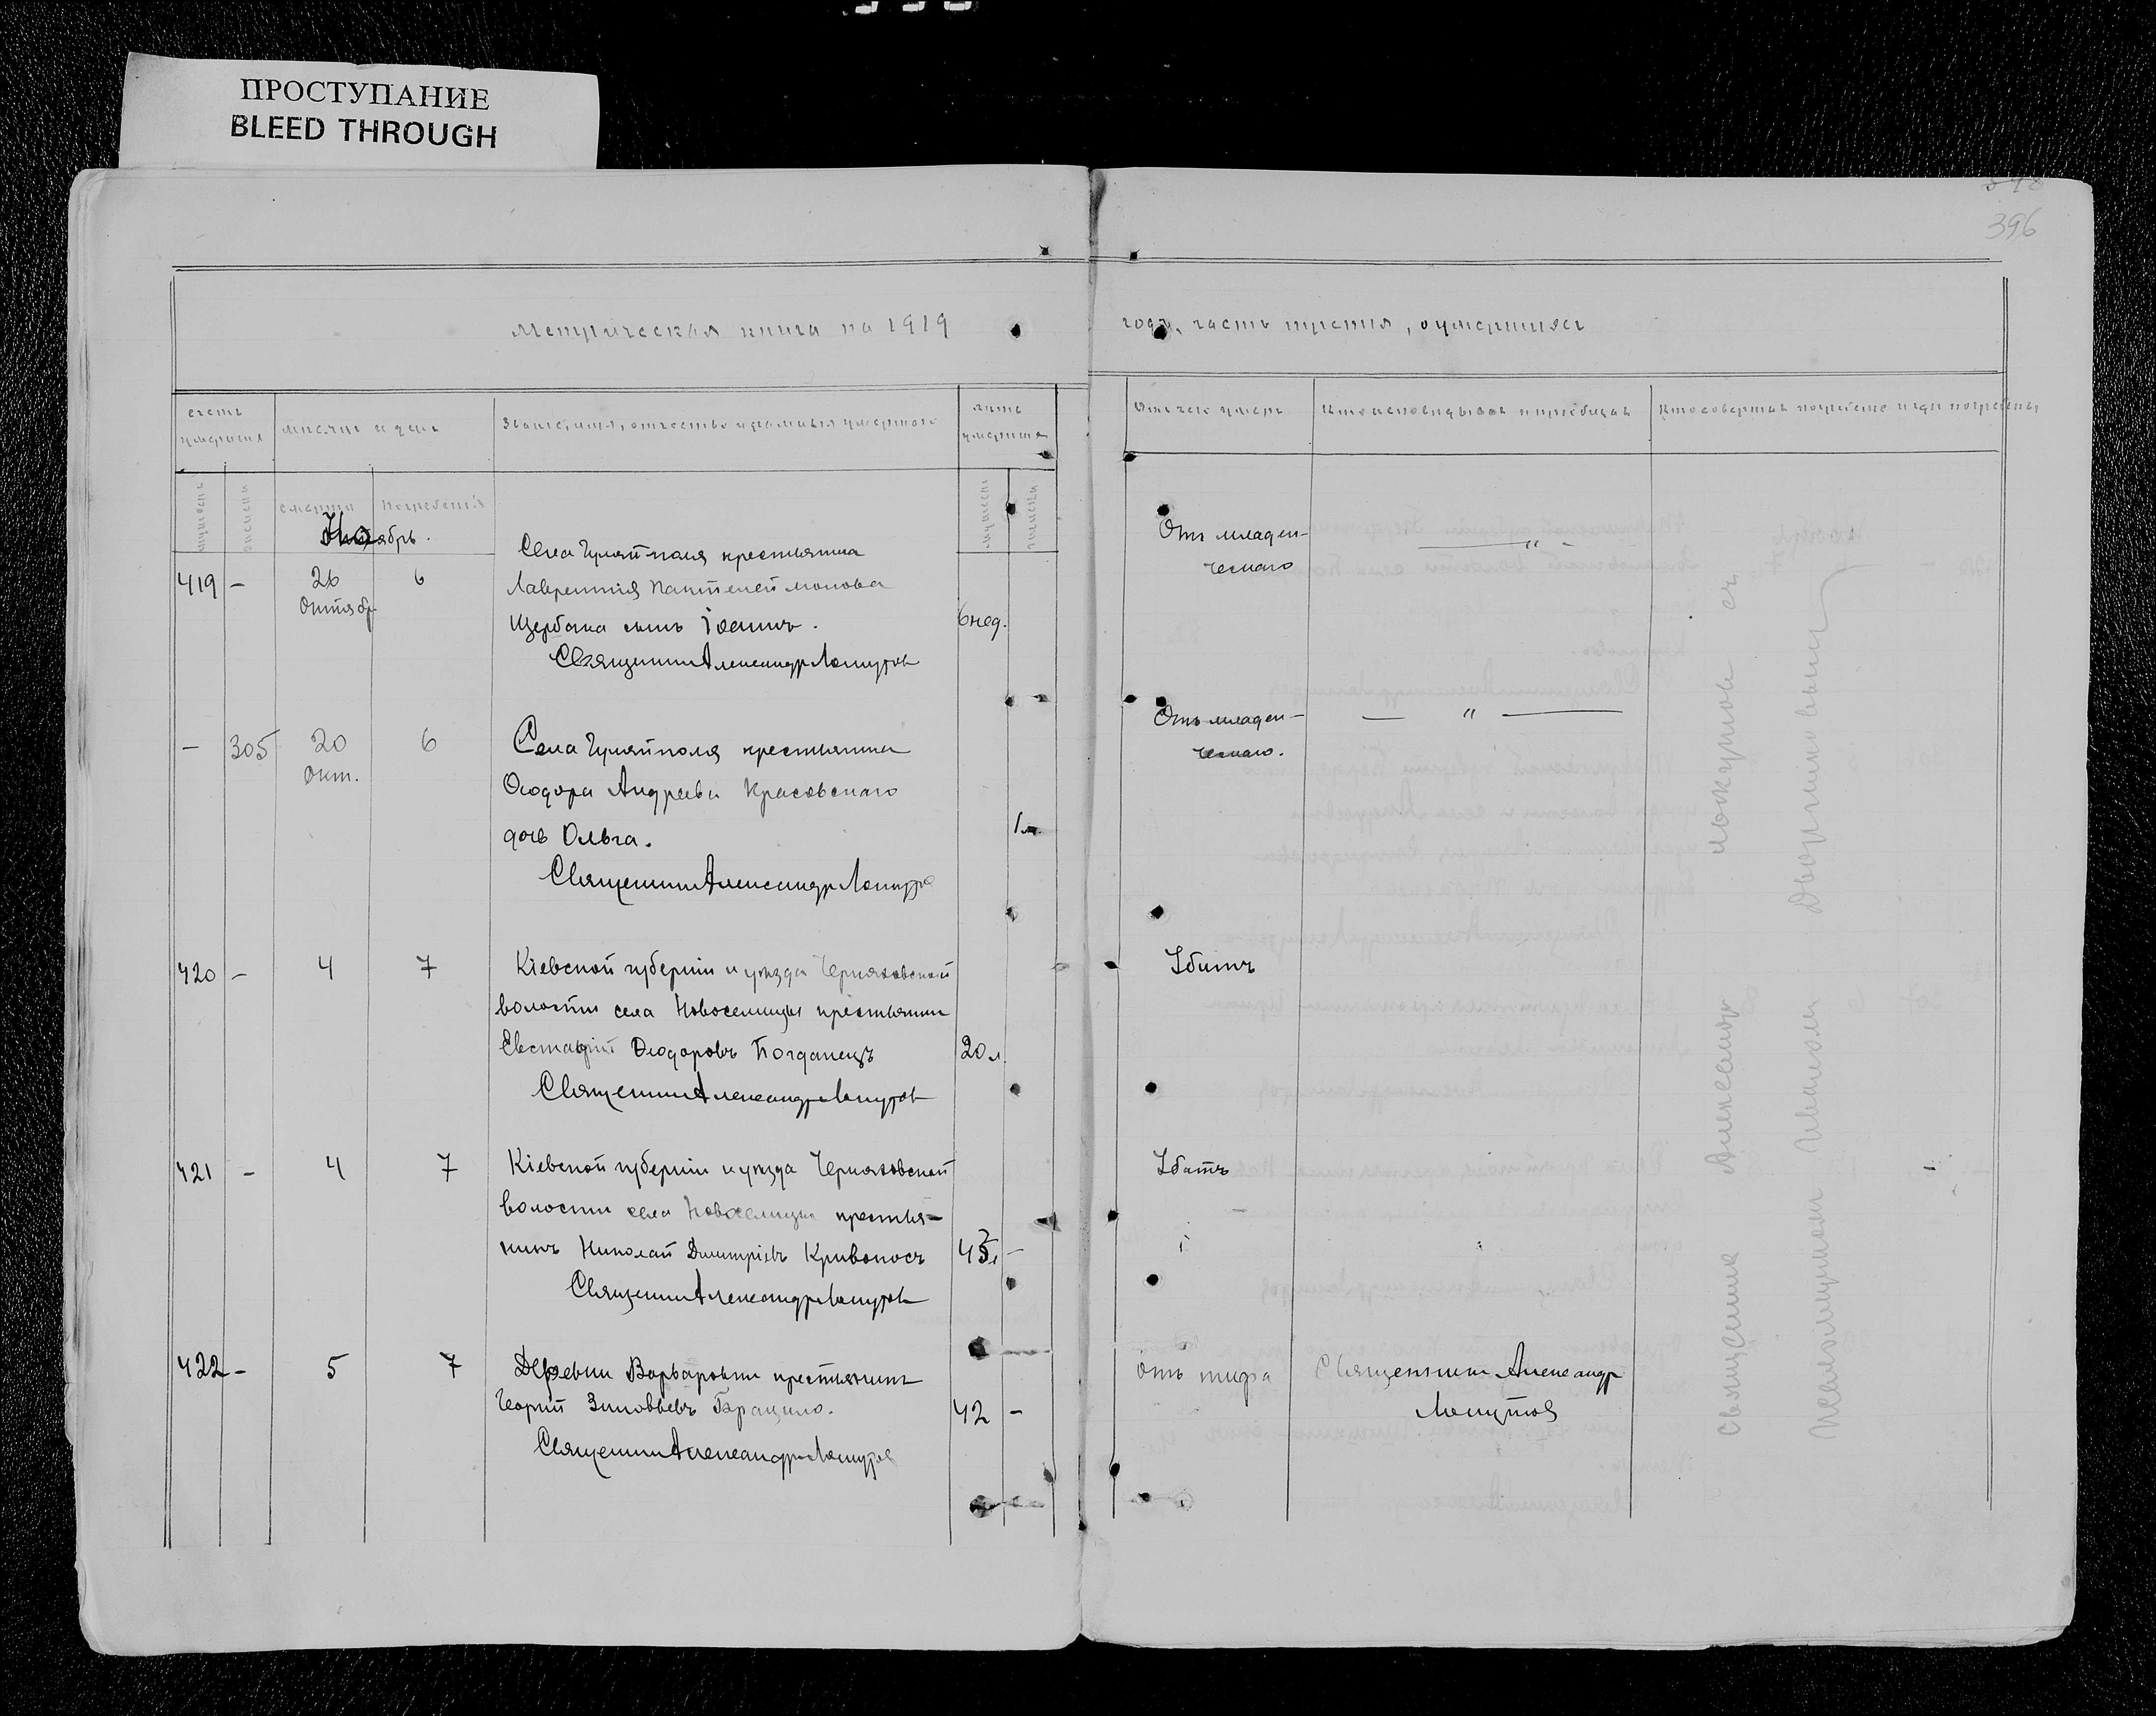 ПРОСТУПАНИЕ
BLEED THROUGH
396
Метрическая книга на 1919
годъ, часть третия, о умершихъ
счетъ
умершихъ
месяцъ и день
Званіе, имя, отчество и фамилія умершаго
лета
умершаго
Отъ чего умеръ
Кто исповедывалъ и приобщалъ
Кто совершалъ погребеніе и где погребены
смерти
погребенія
Ноябрь.
419 -
26
Октябр
6
Села Гуляйполя крестьянина
Лаврентія Пантелеймонова
Щербака сынъ Іоаннъ.
Священникъ Александръ Локутов
6 нед.
Отъ младен-
ческаго
—— " -
- 305
20
Окт.
6
Села Гуляйполя крестьянина
Ѳеодора Андреева Красовскаго
дочь Ольга.
Священникъ Александръ
1 м.
Отъ младен-
ческаго.
— " ——
420 -
4
7
Кіевской губерніи и уезда Черняховской
волости села Новоселицы крестьянин
Евстафій Ѳеодоровъ Богданецъ
Священникъ Александръ
20 л.
Убитъ
421 -
4
7
Кіевской губерніи и уезда Черняховской
волости села Новоселицы крестья-
нинъ Николай Димитріевъ Кривоносъ
Священникъ Александръ
-
Убитъ
422 -
5
7
Деревни Варваровки крестьянинъ
Георгій Зиновьевъ
Священникъ Александръ
42 -
Отъ тифа
Священникъ Александр
Священникъ Александръ съ
Псаломщикомъ Иваномъ